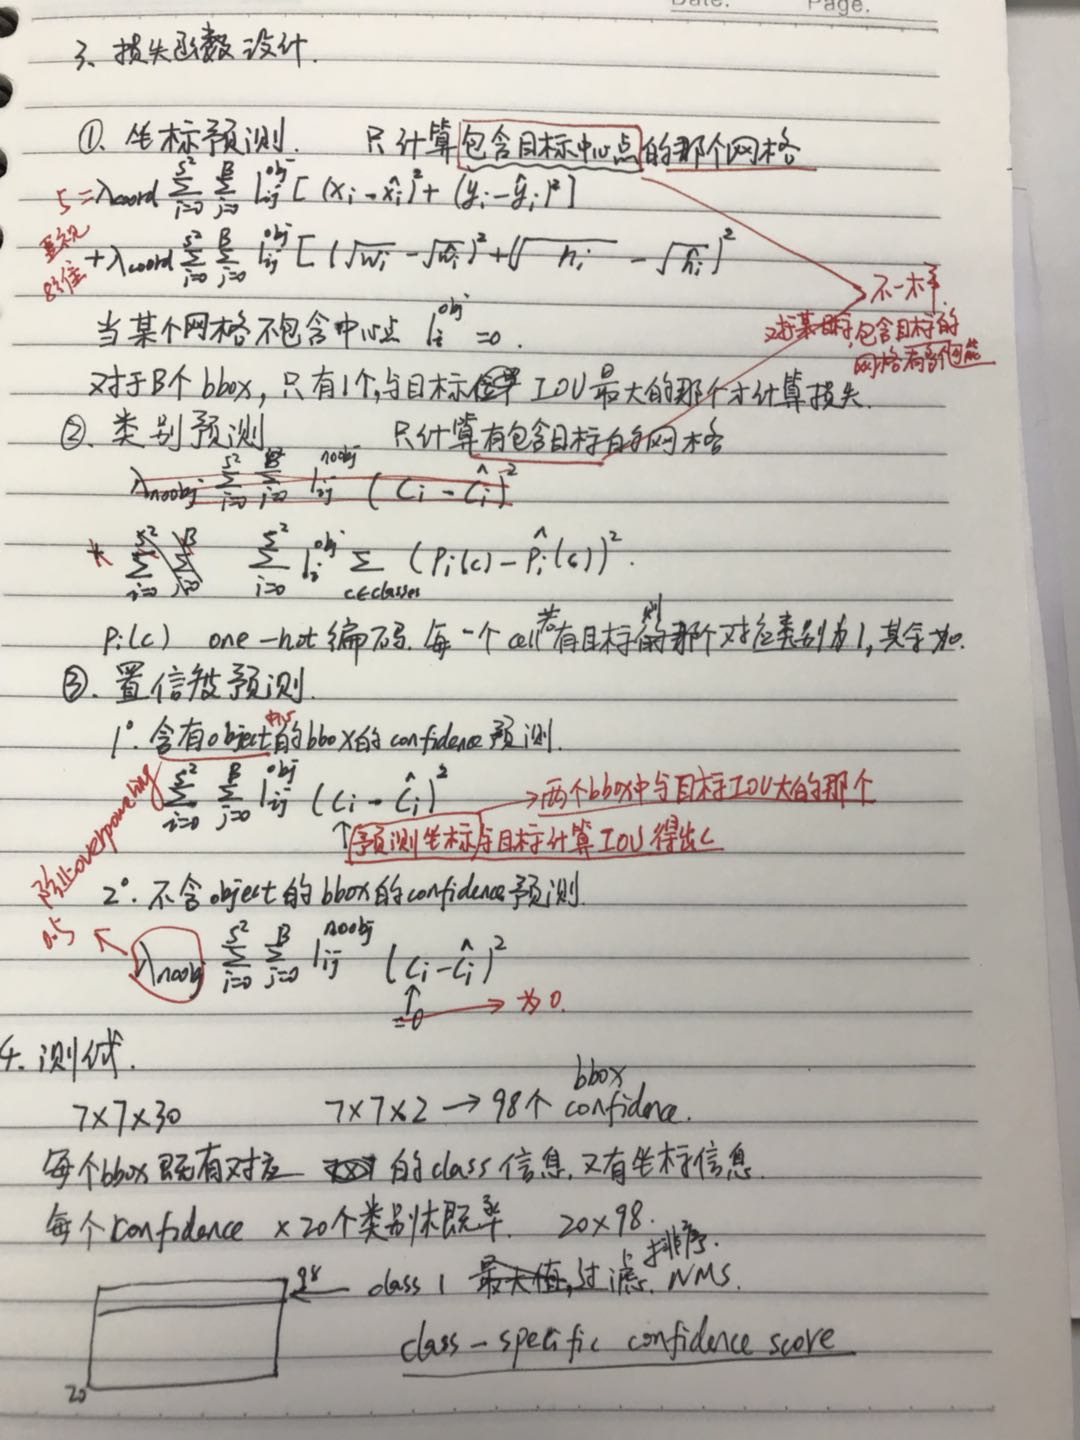 Date. Page.
3、损失函数设计.
①. 坐标预测. 只计算包含目标中心点的那个网格
5 = λcoord Σ(i=0, S²) Σ(j=0, B) 1ij^obj [ (xi - x̂i)² + (yi - ŷi)² ]
重视
8维 + λcoord Σ(i=0, S²) Σ(j=0, B) 1ij^obj [ (√wi - √ŵi)² + (√hi - √ĥi)² ]
不一样.
当某个网格不包含中心点 1i^obj = 0.
对于某目标,包含目标的
网格有多个可能
对于B个bbox, 只有1个,与目标 IOU最大的那个才计算损失.
②. 类别预测 只计算有包含目标的网格
λnoobj Σ(i=0, S²) Σ(j=0, B) 1ij^noobj (Ci - Ĉi)²
* Σ(i=0, S²) Σ(j=0, B) Σ(i=0, S²) 1i^obj Σ(c∈classes) (Pi(c) - P̂i(c))².
Pi(c) one-hot编码. 每一个cell若有目标 则那个对应类别为1, 其余为0.
③. 置信度预测.
1°. 含有object中心的bbox的confidence预测.
Σ(i=0, S²) Σ(j=0, B) 1ij^obj (Ci - Ĉi)² → 两个bbox中与目标IOU大的那个
↑ 预测坐标与目标计算IOU得出C
防止overpowering
0.5
2°. 不含object的bbox的confidence预测.
λnoobj Σ(i=0, S²) Σ(j=0, B) 1ij^noobj (Ci - Ĉi)²
=0 → 为0.
4. 测试.
7×7×30 7×7×2 → 98个 bbox confidence.
每个bbox既有对应 的class信息,又有坐标信息.
每个confidence ×20个类别概率. 20×98.
98 ← class 1 最大值,过滤. 排序. NMS.
20 class-specific confidence score